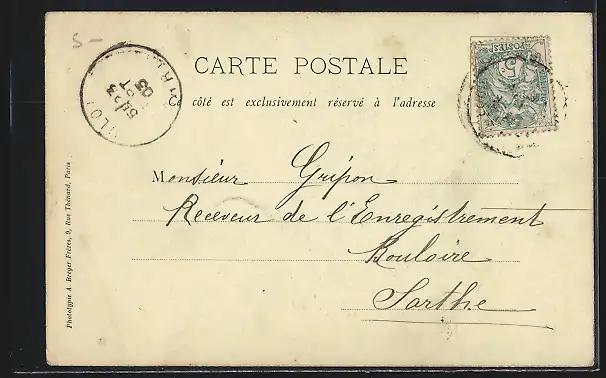 5-
CARTE POSTALE
Ce côté est exclusivement réservé à l'adresse
POSTES
5
Monsieur Gripon
Receveur de l'Enregistrement
Bouloire
Sarthe
Phototypie A. Breger Frères, 9, Rue Thénard, Paris